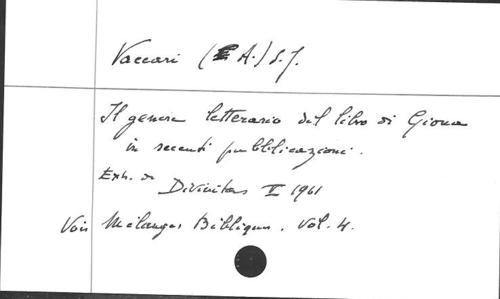 Vaccari (A.) S.J.
Il genere letterario del libro di Giona
in recenti pubblicazioni.
Extr. de Divinitas V 1961
Voir Mélanges Bibliques. Vol. 4.